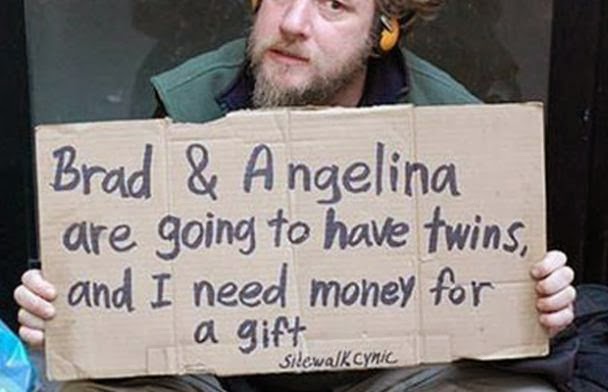 Brad & Angelina
are going to have twins,
and I need money for
a gift
sidewalkcynic